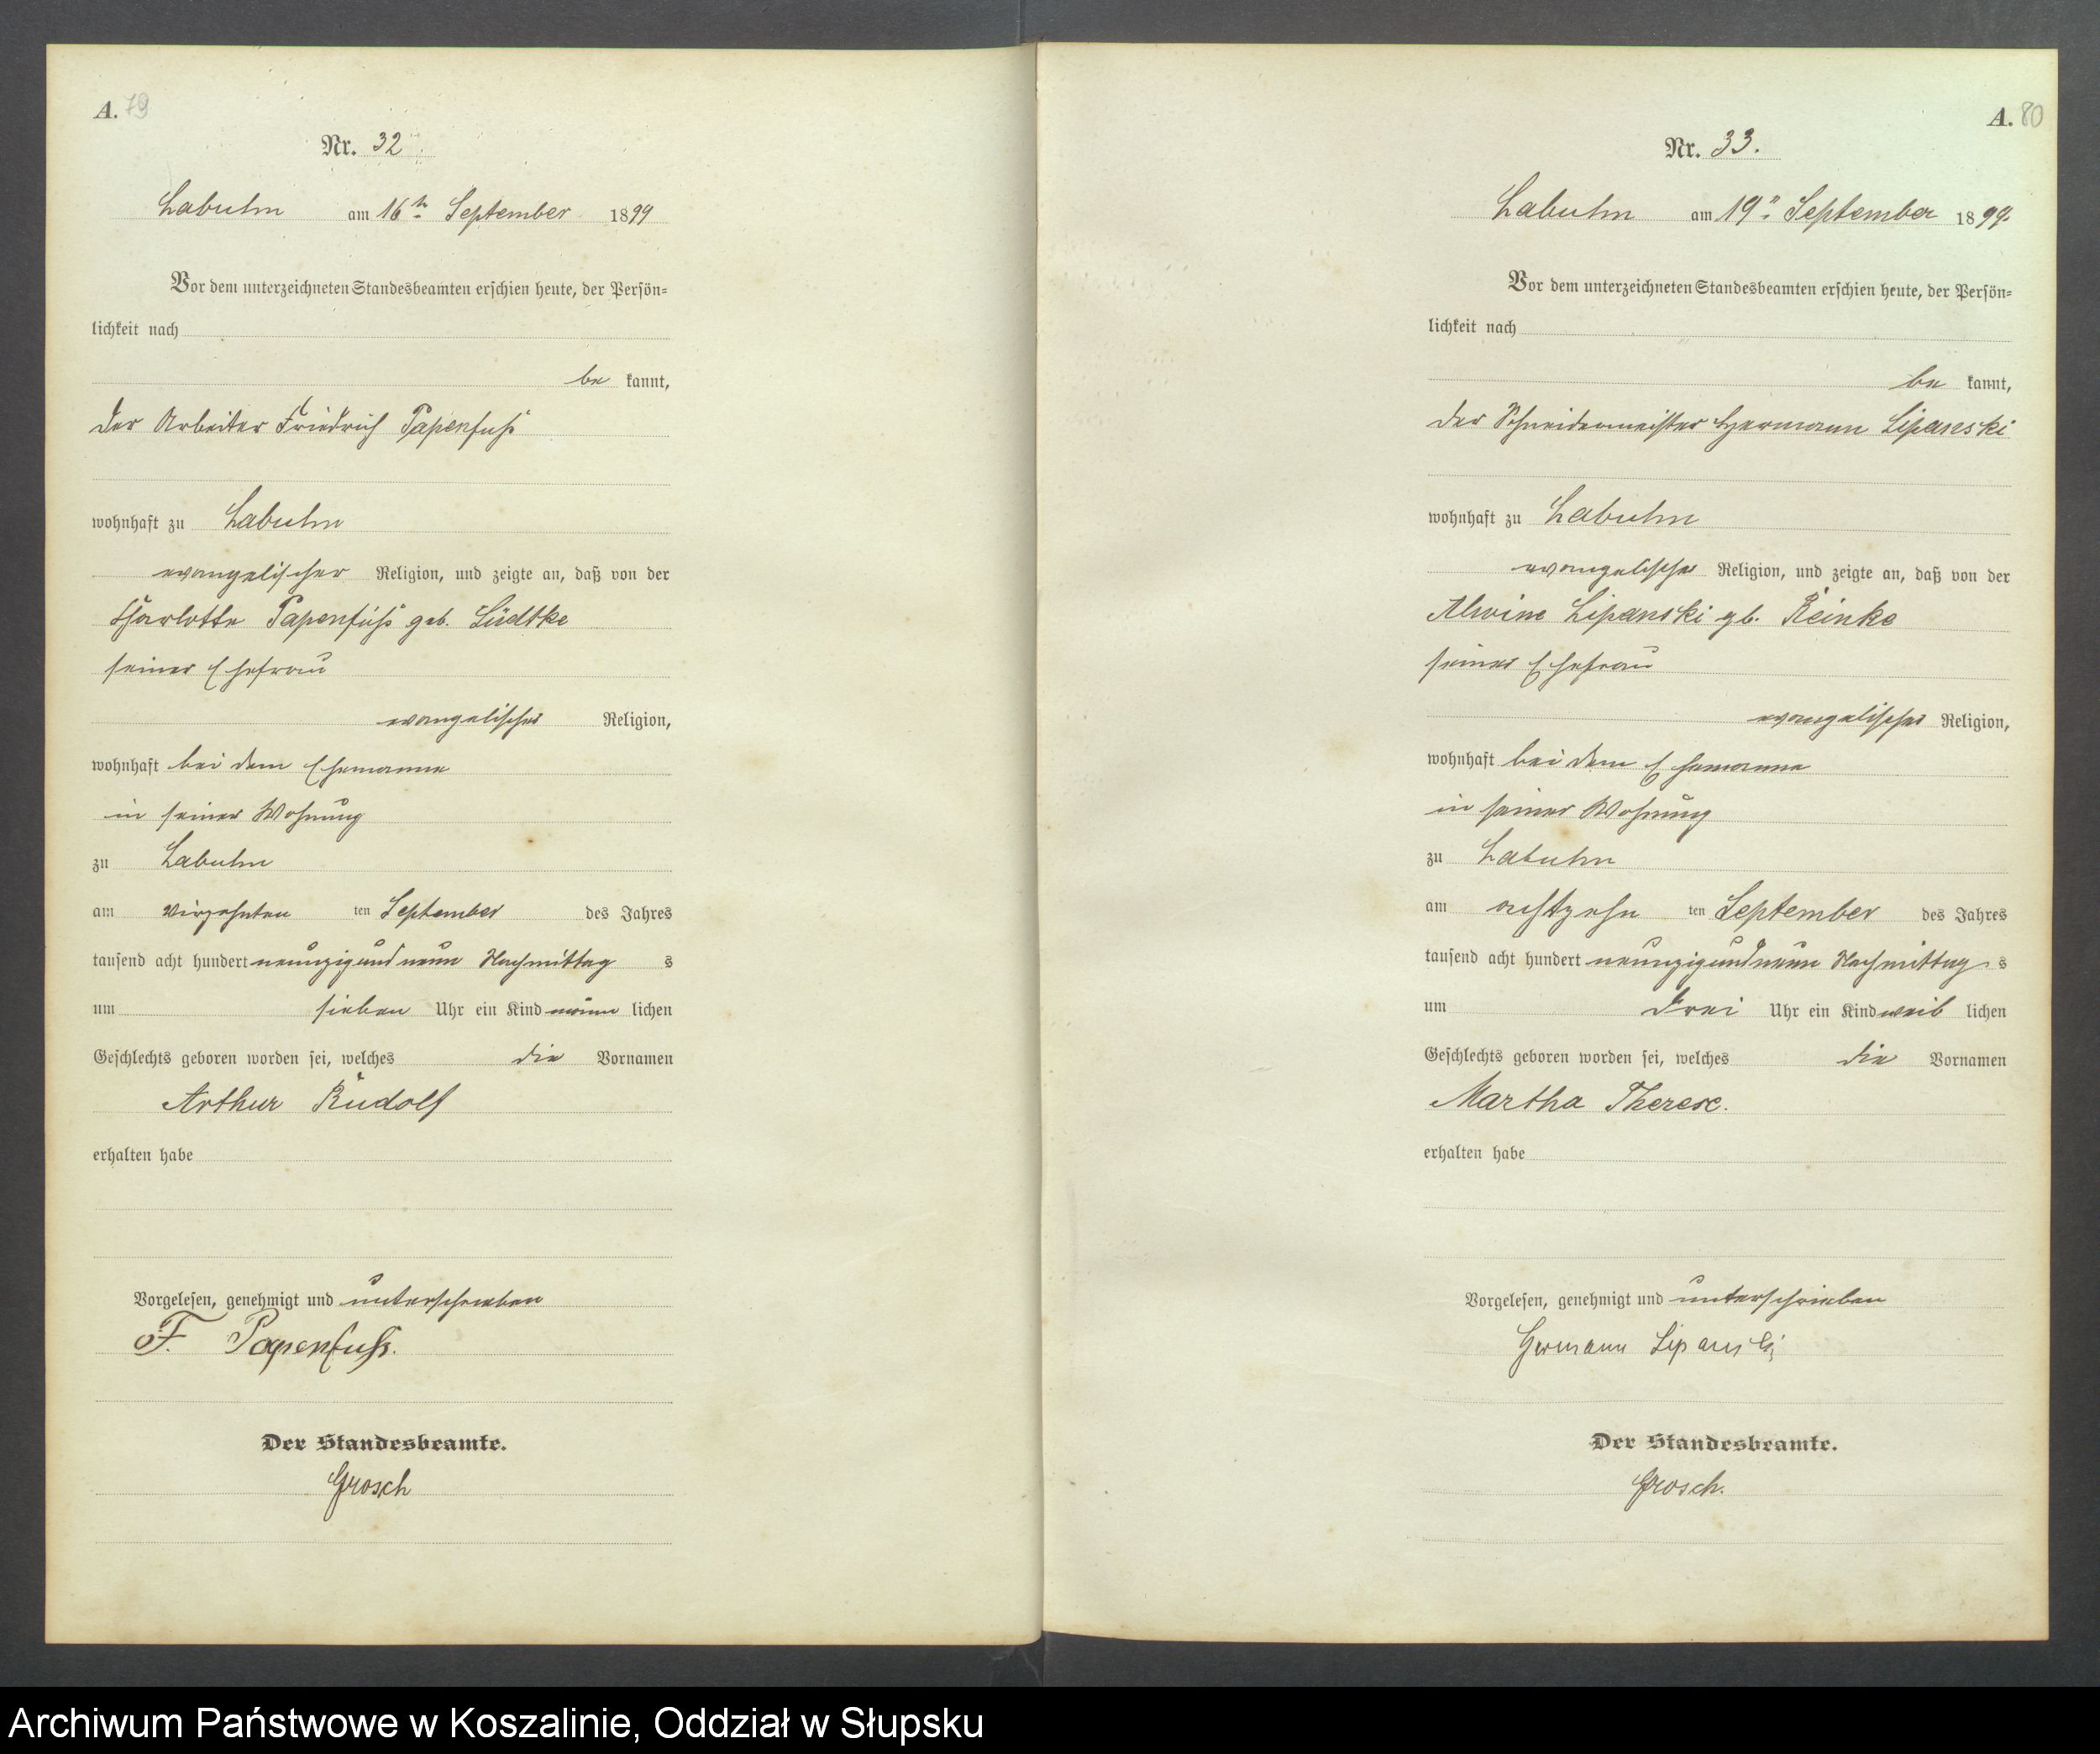 A. 79
Nr. 32
Labuhn am 16ten September 1899
Vor dem unterzeichneten Standesbeamten erschien heute, der Persön-
lichkeit nach
be kannt,
der Arbeiter Friedrich Papenfuß
wohnhaft zu Labuhn
evangelischer Religion, und zeigte an, daß von der
Charlotte Papenfuß geb. Lüdtke
seiner Ehefrau
evangelischer Religion,
wohnhaft bei dem Ehemanne
in seiner Wohnung
zu Labuhn
am vierzehnten ten September des Jahres
tausend acht hundert neunzig und neun Nachmittag s
um sieben Uhr ein Kind männ lichen
Geschlechts geboren worden sei, welches die Vornamen
Arthur Rudolf
erhalten habe
Vorgelesen, genehmigt und unterschrieben
F. Papenfuß.
Der Standesbeamte.
Grosch
A. 80
Nr. 33.
Labuhn am 19n September 1899.
Vor dem unterzeichneten Standesbeamten erschien heute, der Persön-
lichkeit nach
be kannt,
der Schneidermeister Hermann Lipanski
wohnhaft zu Labuhn
evangelischer Religion, und zeigte an, daß von der
Alwine Lipanski gb. Reinke
seiner Ehefrau
evangelischer Religion,
wohnhaft bei dem Ehemanne
in seiner Wohnung
zu Labuhn
am achtzehn ten September des Jahres
tausend acht hundert neunzig und neun Nachmittag s
um drei Uhr ein Kind weib lichen
Geschlechts geboren worden sei, welches die Vornamen
Martha Therese.
erhalten habe
Vorgelesen, genehmigt und unterschrieben
Hermann Lipanski
Der Standesbeamte.
Grosch.
Archiwum Państwowe w Koszalinie, Oddział w Słupsku